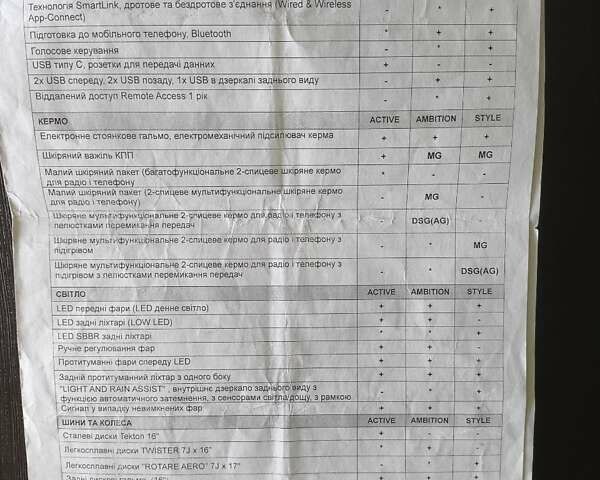 Технологія SmartLink, дротове та бездротове з'єднання (Wired & Wireless
App-Connect) - * +
Підготовка до мобільного телефону, Bluetooth * + +
Голосове керування - * +
USB типу C, розетки для передачі даних + - -
2x USB спереду, 2x USB позаду, 1x USB в дзеркалі заднього виду - + +
Віддалений доступ Remote Access 1 рік - * +
КЕРМО ACTIVE AMBITION STYLE
Електронне стоянкове гальмо, електромеханічний підсилювач керма + + +
Шкіряний важіль КПП + MG MG
Малий шкіряний пакет (багатофункціональне 2-спицеве шкіряне кермо
для радіо і телефону) * - -
Малий шкіряний пакет (2-спицеве мультифункціональне шкіряне кермо
для радіо і телефону) - MG -
Шкіряне мультифункціональне 2-спицеве кермо для радіо і телефону з
пелюстками перемикання передач - DSG(AG) -
Шкіряне мультифункціональне 2-спицеве кермо для радіо і телефону з
підігрівом - * MG
Шкіряне мультифункціональне 2-спицеве кермо для радіо і телефону з
підігрівом з пелюстками перемикання передач - * DSG(AG)
СВІТЛО ACTIVE AMBITION STYLE
LED передні фари (LED денне світло) + + +
LED задні ліхтарі (LOW LED) + + -
LED SBBR задні ліхтарі * * +
Ручне регулювання фар + + -
Протитуманні фари спереду LED + + +
Задній протитуманний ліхтар з одного боку + + +
"LIGHT AND RAIN ASSIST" , внутрішнє дзеркало заднього виду з
функцією автоматичного затемнення, з сенсорами світла/дощу, з рамкою - * +
Сигнал у випадку невимкнених фар + + +
ШИНИ ТА КОЛЕСА ACTIVE AMBITION STYLE
Сталеві диски Tekton 16" + - -
Легкосплавні диски TWISTER 7J x 16" * + -
Легкосплавні диски "ROTARE AERO" 7J x 17" - * +